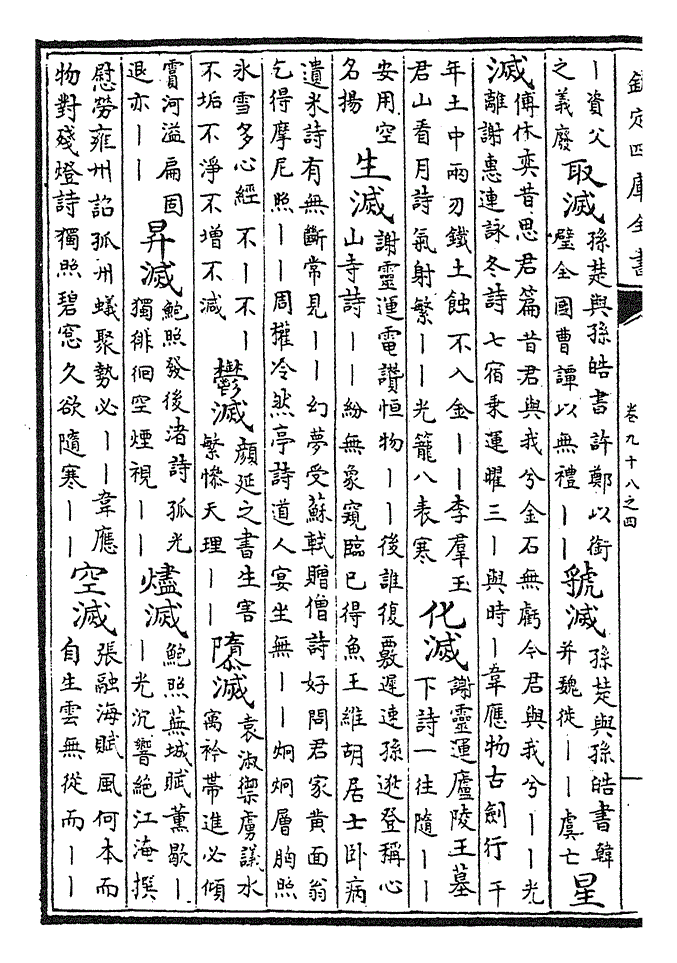 欽定四庫全書
卷九十八之四
丨資父
之義廢
取滅
孫楚與孫皓書許鄭以銜
璧全國曹譚以無禮丨丨
虢滅
孫楚與孫皓書韓
并魏徙丨丨虞亡
星
滅
傅休奕昔思君篇昔君與我兮金石無虧今君與我兮丨丨光
離謝惠連詠冬詩七宿乘運曜三丨與時丨韋應物古劍行千
年土中兩刃鐵土蝕不入金丨丨李羣玉
君山看月詩氣射繁丨丨光籠八表寒
化滅
謝靈運廬陵王墓
下詩一往隨丨丨
安用空
名揚
生滅
謝靈運電讚恒物丨丨後誰復覈遲速孫逖登稱心
山寺詩丨丨紛無象窺臨已得魚王維胡居士卧病
遺米詩有無斷常見丨丨幻夢受蘇軾贈僧詩好問君家黄面翁
乞得摩尼照丨丨周權冷然亭詩道人宴坐無丨丨炯炯層胸照
氷雪多心經不丨不丨
不垢不淨不增不減
鬱滅
顔延之書生害
繁慘天理丨丨
隳滅
袁淑禦虜議水
寓衿帶進必傾
霣河溢扁固
退亦丨丨
昇滅
鮑照發後渚詩孤光
獨徘徊空煙視丨丨
燼滅
鮑照蕪城賦薰歇丨
丨光沉響絶江淹撰
慰勞雍州詔孤州蟻聚勢必丨丨韋應
物對殘燈詩獨照碧窓久欲隨寒丨丨
空滅
張融海賦風何本而
自生雲無從而丨丨